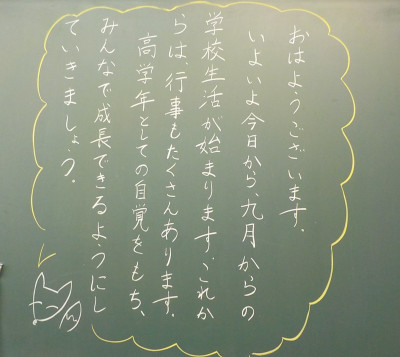 おはようございます。
いよいよ今日から、九月からの
学校生活が始まります。これか
らは、行事もたくさんあります。
高学年としての自覚をもち、
みんなで成長できるようにし
ていきましょう。